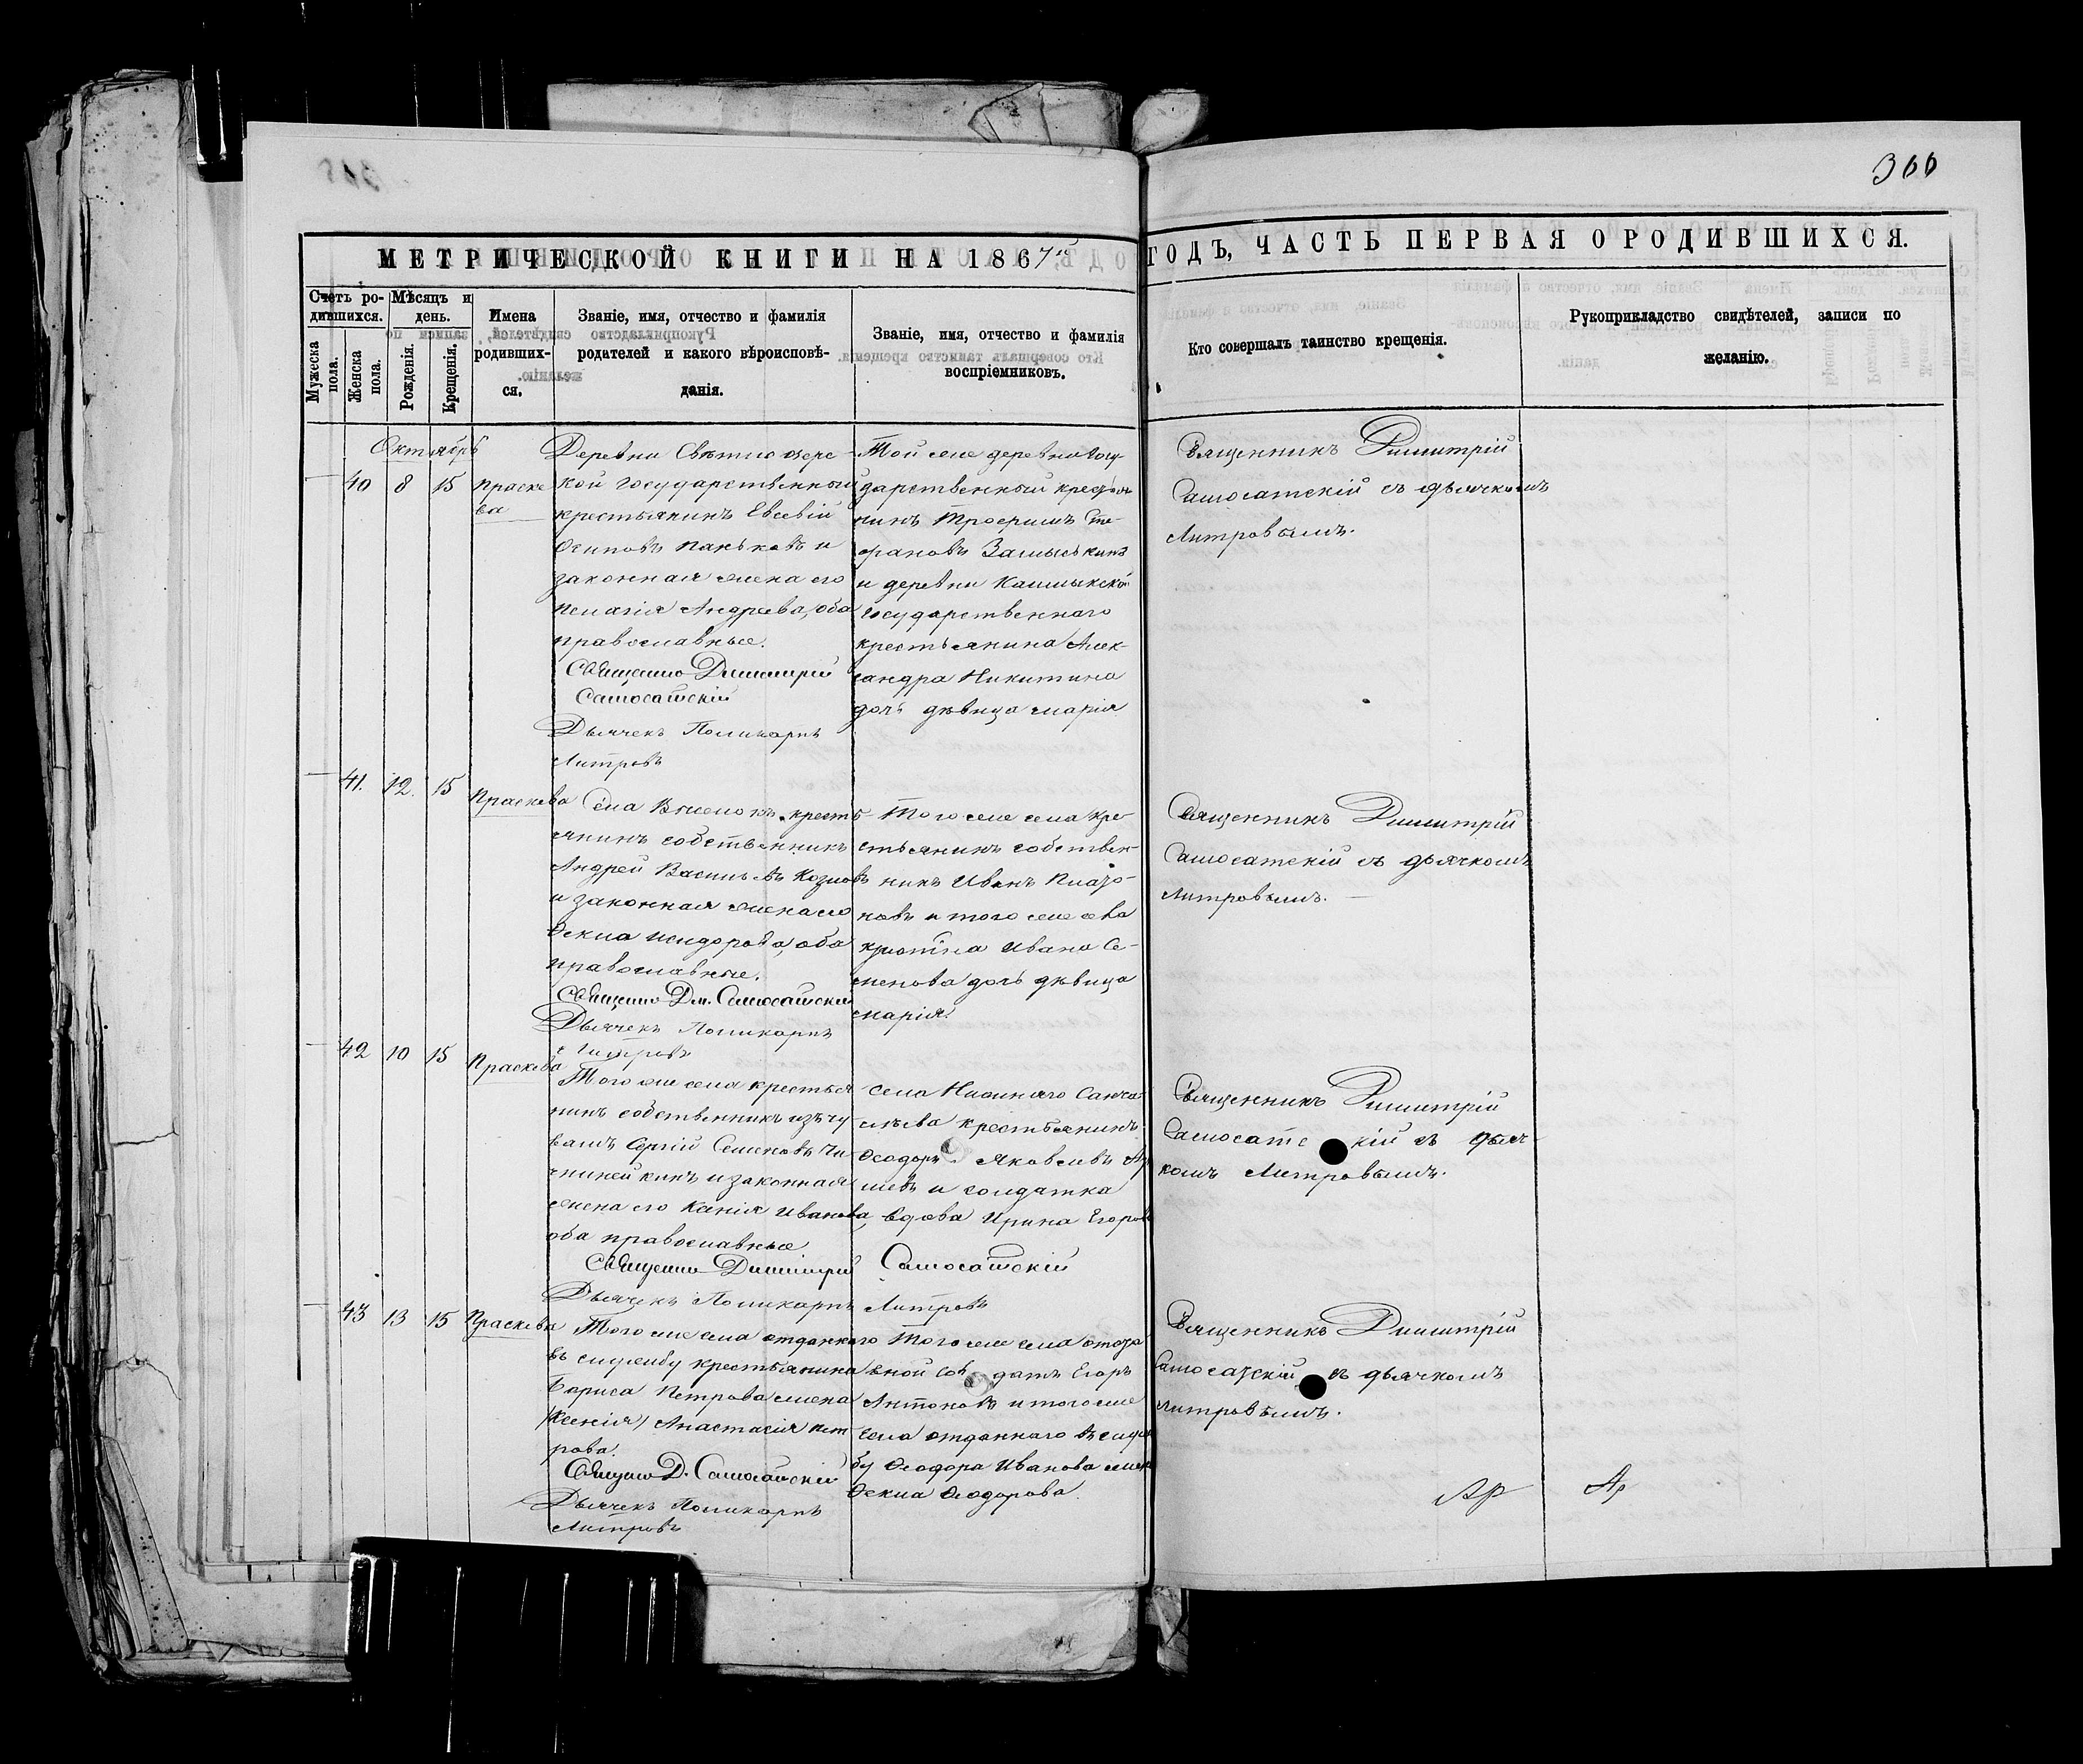 366
МЕТРИЧЕСКОЙ КНИГИ НА 1867й ГОДЪ, ЧАСТЬ ПЕРВАЯ О РОДИВШИХСЯ.
Счетъ ро-
дившихся.
Мужеска
пола.
Женска
пола.
Мѣсяцъ и
день.
Рожденія.
Крещенія.
Имена
родивших-
ся.
Званіе, имя, отчество и фамилія
родителей и какого вѣроисповѣ-
данія.
Званіе, имя, отчество и фамилія
воспріемниковъ.
Кто совершалъ таинство крещенія.
Рукоприкладство свидѣтелей, записи по
желанію.
Октябрь
40 8 15 Праске
ва
Деревни Свѣтлоозерс-
кой государственный
крестьянинъ Евсевій
Осиповъ Паньковъ и
законная жена его
Пелагія Андреева, оба
православные.
Священно Димитрій
Самосатскій
Дьячекъ Поликарпъ
Литровъ
Той же деревни госу-
дарственный крестья
нинъ Трофимъ Сте-
фановъ Замыськинъ
и деревни
государственнаго
крестьянина Алек-
сандра Никитина
дочь дѣвица Марія
Священникъ Димитрій
Самосатскій съ дьячкомъ
Литровымъ.
41. 12. 15 Праскева
Села кресть
янинъ собственникъ
Андрей Васильевъ Козловъ
и законная жена его
Ѳекла Исидорова, оба
православные.
Священно Дм. Самосатскій
Дьячекъ Поликарпъ
Литровъ
Того же села кре-
стьянинъ собствен-
никъ Иванъ Плато-
новъ и того же села
Ивана Се-
менова дочь дѣвица
Марія.
Священникъ Димитрій
Самосатскій съ дьячкомъ
Литровымъ.
42 10 15 Праскева
Того же села крестья
нинъ собственникъ изъ чу
вашъ Сергій Семеновъ
и законная
жена его Ксенія Иванова,
оба православные
Священно Димитрій Самосатскій
Дьячекъ Поликарпъ Литровъ
Села Нижняго Санче
лѣева крестьянинъ
Ѳеодоръ Яковлевъ
и солдатка
вдова Ирина Егорова
Священникъ Димитрій
Самосатскій съ дьяч-
комъ Литровымъ.
43 13 15 Праскева
Того же села отданнаго
въ службу крестьянина
Бориса Петрова жена
/Ксенія/ Анастасія Пет
рова.
Священно Д. Самосатскій
Дьячекъ Поликарпъ
Литровъ
Того же села
солдатъ Егоръ
Антоновъ и того же
села отданнаго въ служ
бу Ѳеодора Иванова жена
Ѳекла Ѳеодорова.
Священникъ Димитрій
Самосатскій съ дьячкомъ
Литровымъ.